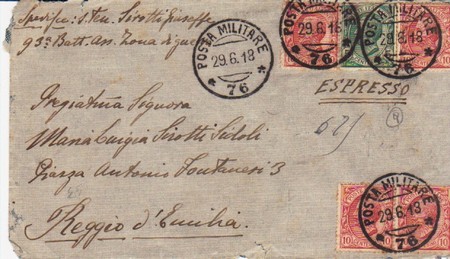 S. Ten. Sirotti Giuseppe
93° Batt. Ass. Zona di
POSTA MILITARE
29.6.18
76
POSTA MILITARE
29.6.18
76
ESPRESSO
Pregiatma Signora
Maria Luigia Sirotti Sidoli
Piazza Antonio Fontanesi 3
Reggio d'Emilia
POSTA MILITARE
29.6.18
76
10
10
10